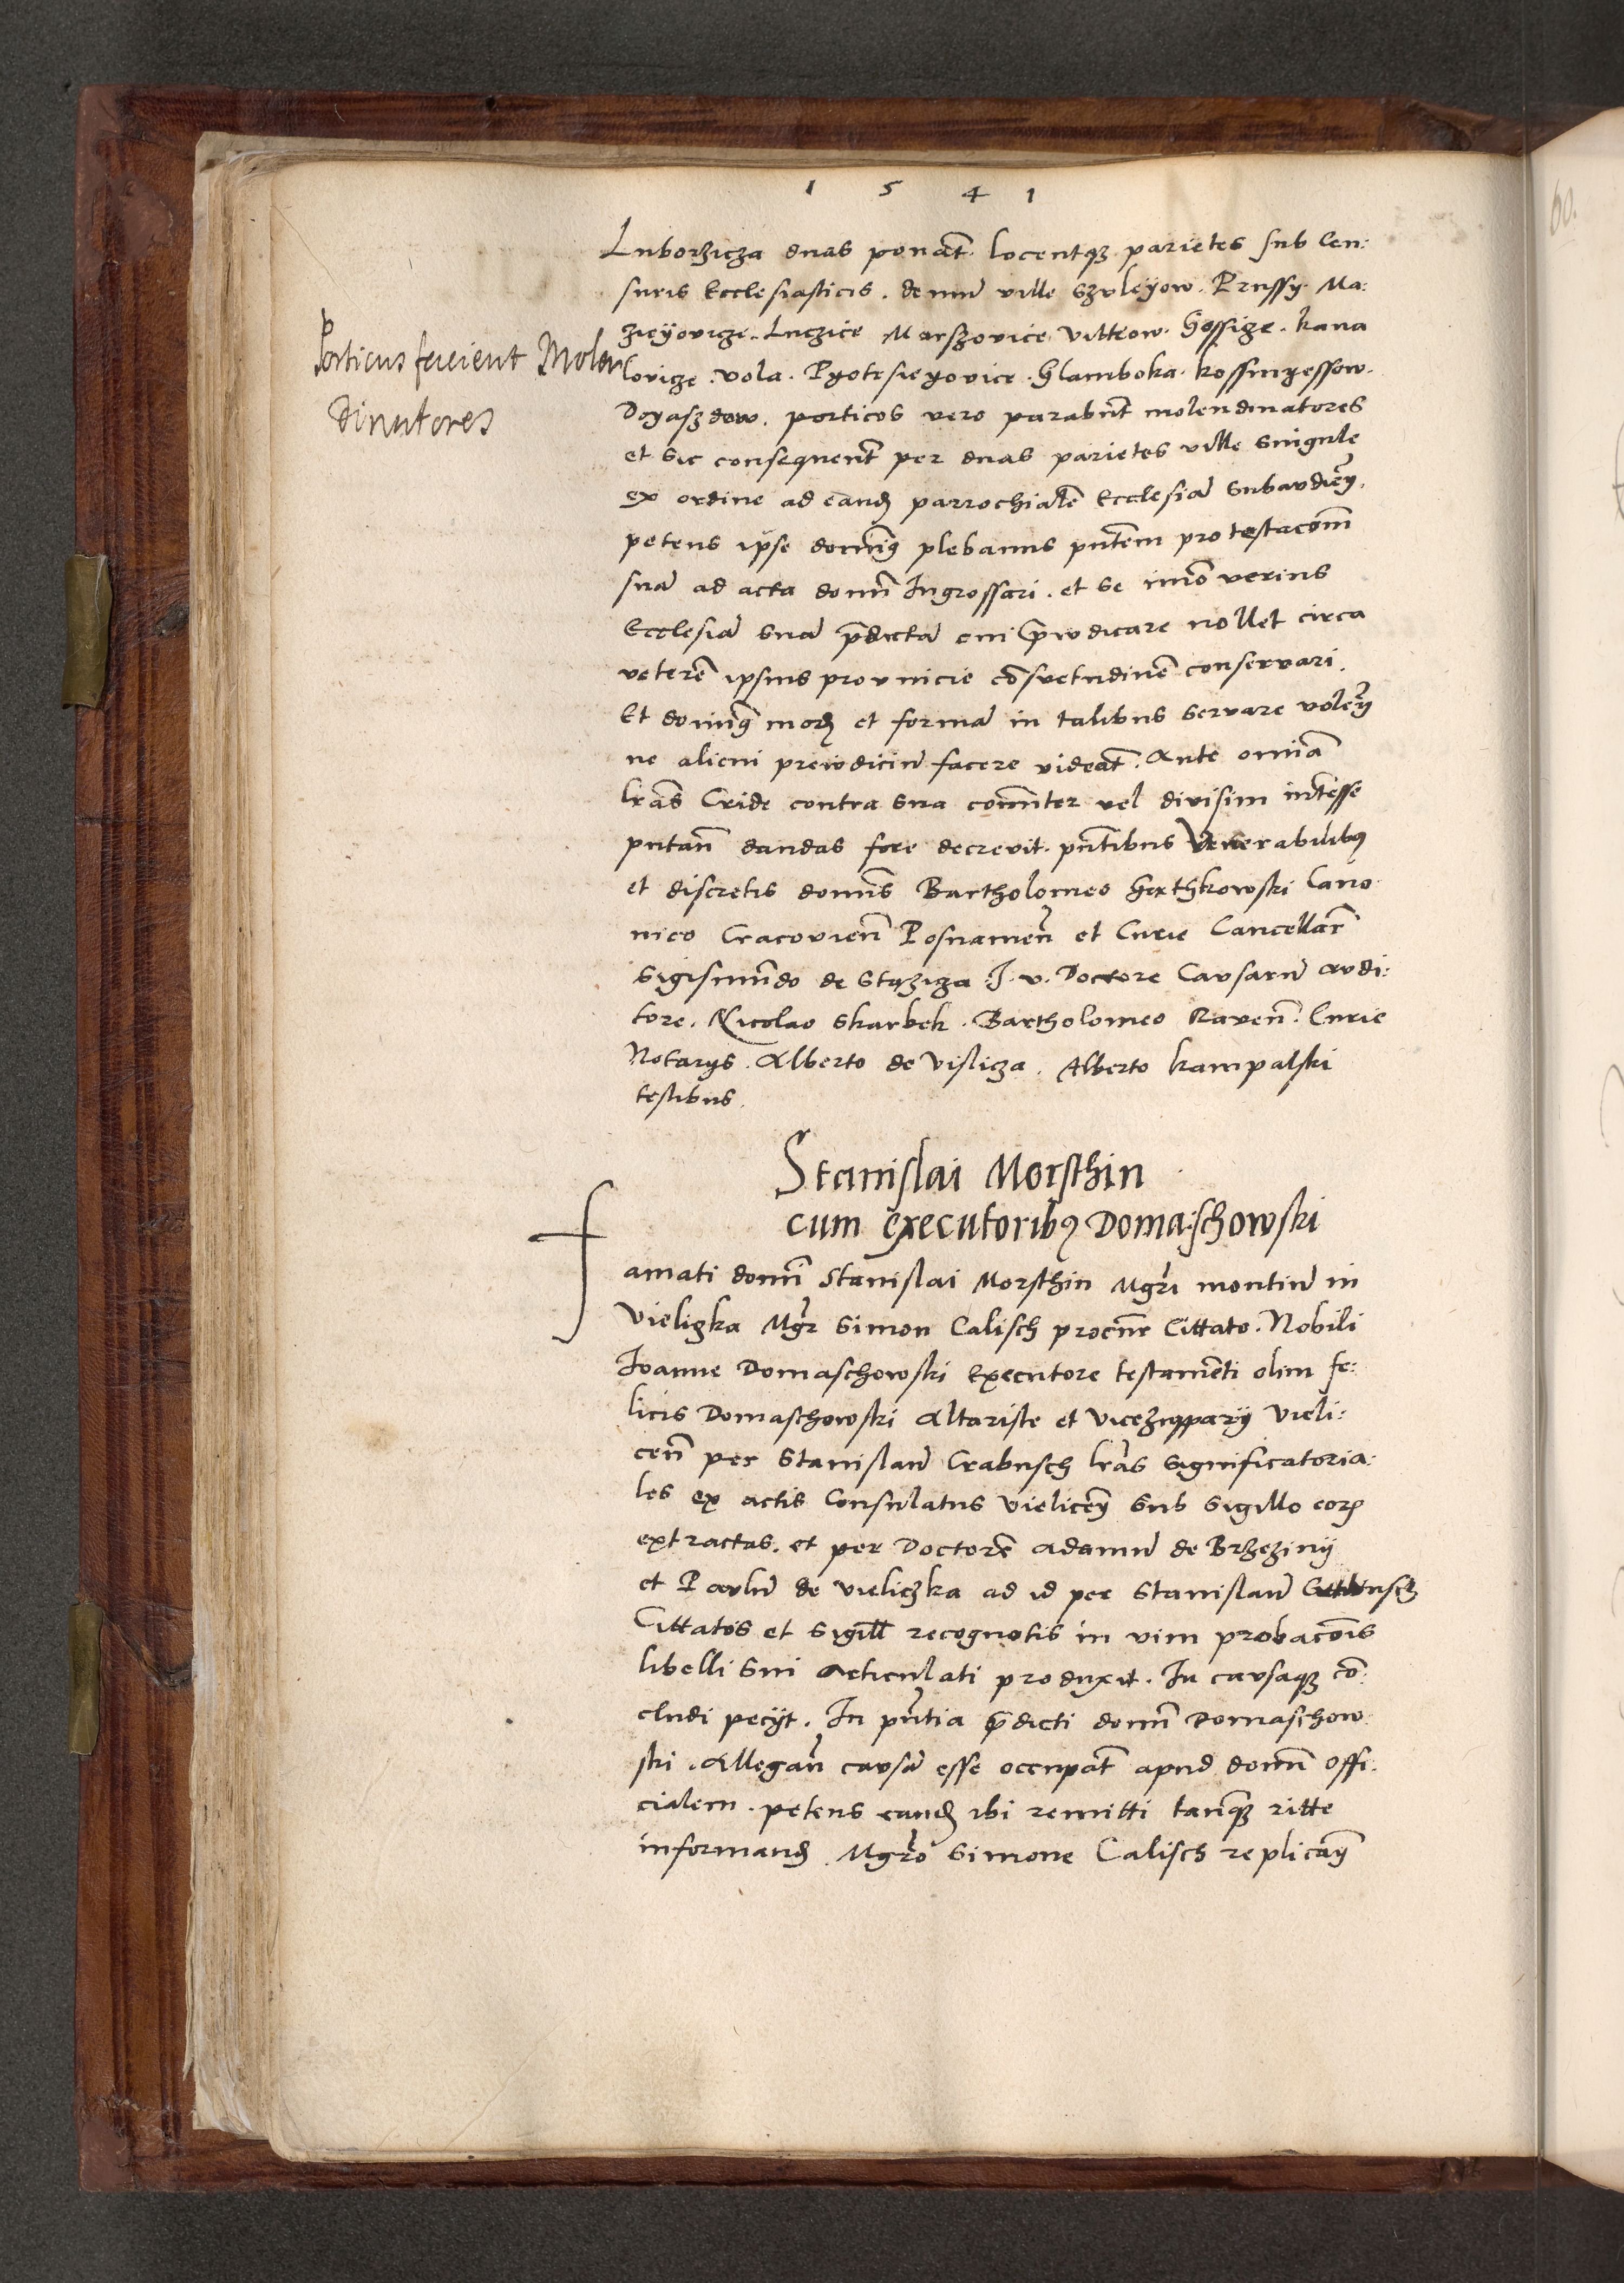 1 5 4 1
Luborzicza duas ponãt locentqȝ parietes sub Cen:
suris Ecclesiasticis. demũ ville Szuleyow. Prussy. Ma:
zieyovicze. Luczice Marszovice Vittcow. Gossicze. kana
lovicze. Vola. Pyotrsieyovice. Glamboka. kossmyessow.
Doyaszdow. porticos vero parabũt molendinatores
Porticus facient Molen
dinatores
et sic consequent per duas parietes ville singule
ex ordine ad eand parrochialẽ Ecclesiã subaudieñ.
petens ipse dominꝰ plebanus pñtem protestacoẽm
suã ad acta domñ Ingrossari. et se imo verius
Ecclesiã suã p̃dictã cui p̃iudicare nollet circa
veterẽ ipsius provincie cõsvetudinẽ conservari.
Et dominꝰ mod et formã in talibus servare voleñ
ne alicui preiudiciũ facere videãt. Ante omniã
lr̃as Cride contra sua com̃iter vel divisim intẽsse
putañ dandas fore decrevit. pñtibus Venerabilibꝰ
et discretis domĩs Bartholomeo Ganthkowski Cano
nico Cracovieñ Posnanieñ et Curie Cancellar̃
Sigismundo de Stazicza J. v. Doctore Causarũ audi:
tore. Nicolao Skarbek. Bartholomeo Raveñ. Curie
Notarijs. Alberto de Vislicza. Alberto kampalski
testibus.
Stanislai Morsthin
cum executoribꝰ Domaschowski
Famati domĩ Stanislai Morsthin Mgr̃i montiũ in
Vieliczka Mgr̃ Simon Calisch procur̃ Cittato. Nobili
Joanne Domaschowski Executore testamẽti olim fe:
licis Domaschowski Altariste et Vicezupparij Vieli:
ceñ per Stanislaũ Crabusch lr̃as significatoria:
les ex actis Consulatus Vieliceñ sub sigillo eorꝫ
extractas. et per Doctorẽ Adamũ de Brzeziny
et Paulũ de Vieliczka ad id per Stanislaũ
Cittatos et sigill recognotis in vim probacõis
libelli sui articulati produxit. In causaqȝ cõ:
cludi peciit. In pñtia p̃dicti domĩ Domaschow
ski. Allegañ causã esse occupat̃ apud domñ Offi:
cialem. petens eand ibi remitti tanqȝ ritte
informand. Mgr̃o Simone Calisch replicañ